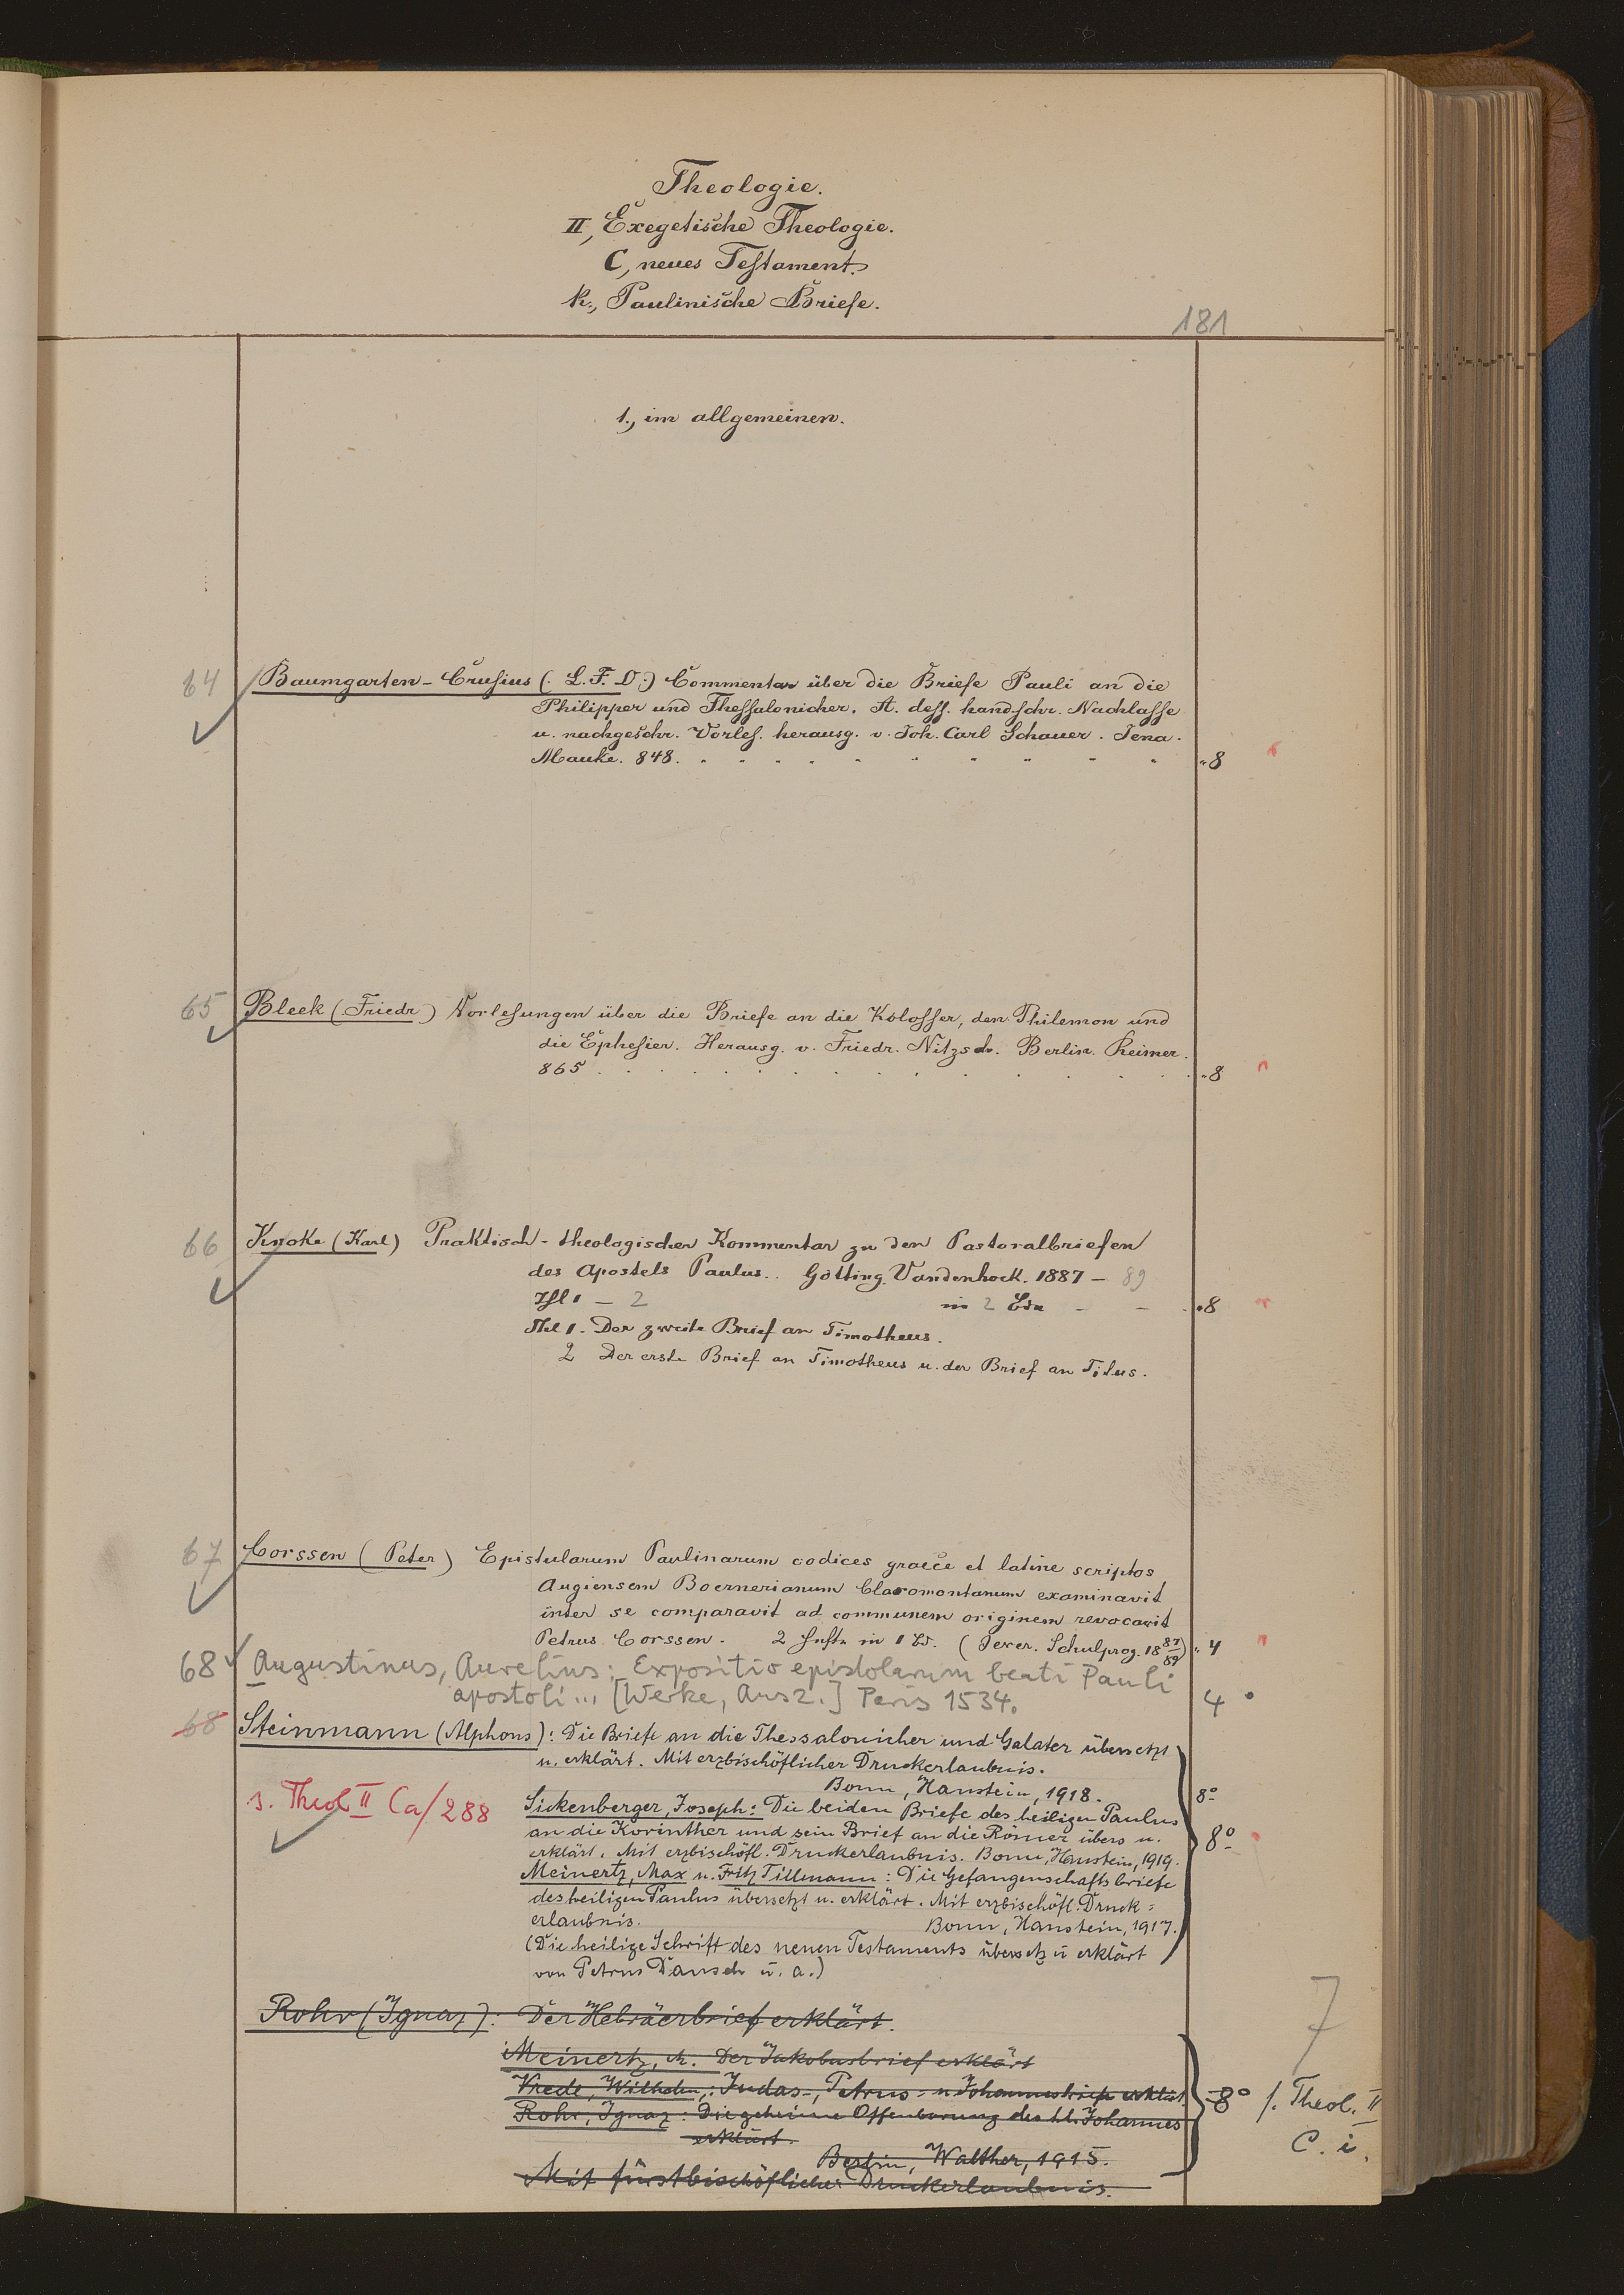 Theologie.
II, Exegetische Theologie.
C, neues Testament.
k., Paulinische Briefe.
181
1., im allgemeinen.
64 Baumgarten-Crusius (L. F. O.) Commentar über die Briefe Pauli an die
Philipper und Thessalonicher. A. dess. handschr. Nachlasse
u. nachgeschr. Vorles. herausg. v. Joh. Carl Schauer. Jena.
Mauke. 848. " 8
65 Bleek (Friedr) Vorlesungen über die Briefe an die Kolosser, den Philemon und
die Ephesier. Herausg. v. Friedr. Nitzsch. Berlin. Reimer.
865 . . . " 8
66 Knoke (Karl) Praktisch-theologischer Kommentar zu den Pastoralbriefen
des Apostels Paulus.. Götting. Vandenhoeck. 1887 – 89
Thl 1 – 2 in 2 Bdn - - " 8
Thl 1. Der zweite Brief an Timotheus.
2 Der erste Brief an Timotheus u. der Brief an Titus.
67 Corssen (Peter) Epistularum Paulinarum codices graece et latine scriptos
Augiensem Boernerianum Claromontanum examinavit
inter se comparavit ad communem originem revocavit
Petrus Corssen. 2 Hefte in 1 Bd. (Jever. Schulprog. 18 87/89) " 4
68 Augustinus, Aurelius: Expositio epistolarum beati Pauli
apostoli ... [Werke, Ausz.] Paris 1534. 4°
68 Steinmann (Alphons): Die Briefe an die Thessalonicher und Galater übersetzt
u. erklärt. Mit erzbischöflicher Druckerlaubnis.
Bonn, Hanstein, 1918. 8°
s. Theol II Ca/288
Sickenberger, Joseph: Die beiden Briefe des heiligen Paulus
an die Korinther und sein Brief an die Römer übers u.
erklärt. Mit erzbischöfl. Druckerlaubnis. Bonn, Hanstein, 1919. 8°
Meinertz, Max u. Fritz Tillmann: Die Gefangenschaftsbriefe
des heiligen Paulus übersetzt u. erklärt. Mit erzbischöfl. Druck-
erlaubnis. Bonn, Hanstein, 1917.
(Die heilige Schrift des neuen Testaments übersetz u erklärt
von Petrus Dausch u. a.)
7
Rohr (Ignaz): Der Hebräerbrief erklärt.
Meinertz, M. Der Jakobusbrief erklärt
Vrede, Wilhelm,: Judas-, Petrus- u Johannesbriefe erklärt.
Rohr, Ignaz: Die geheime Offenbarung des hl. Johannes
erklärt.
8° s. Theol. II
C. i.
Berlin, Walther, 1915.
Mit fürstbischöflicher Druckerlaubnis.